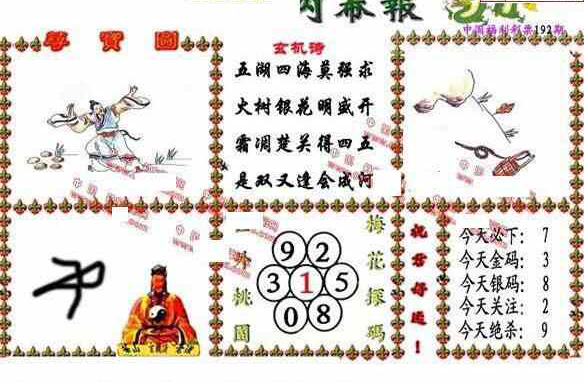 内幕報
中国福利彩票192期
尋寶圖
玄机诗
五湖四海莫强求
火树银花明盛开
霜凋楚关得四五
是双又逢会成河
一片桃園
9 2
3 1 5
0 8
梅花探碼
祝君好运！
今天必下：7
今天金码：3
今天银码：8
今天关注：2
今天绝杀：9